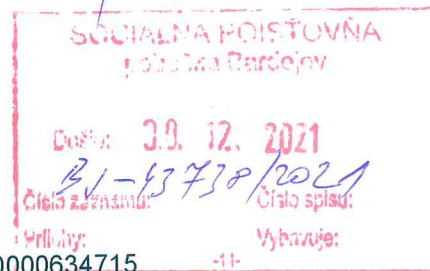 SOCIÁLNA POISŤOVŇA
pobočka Bardejov
Došlo: 30. 12. 2021
BJ-43738/2021
Číslo záznamu: Číslo spisu:
Prílohy: Vybavuje:
0000634715 -11-